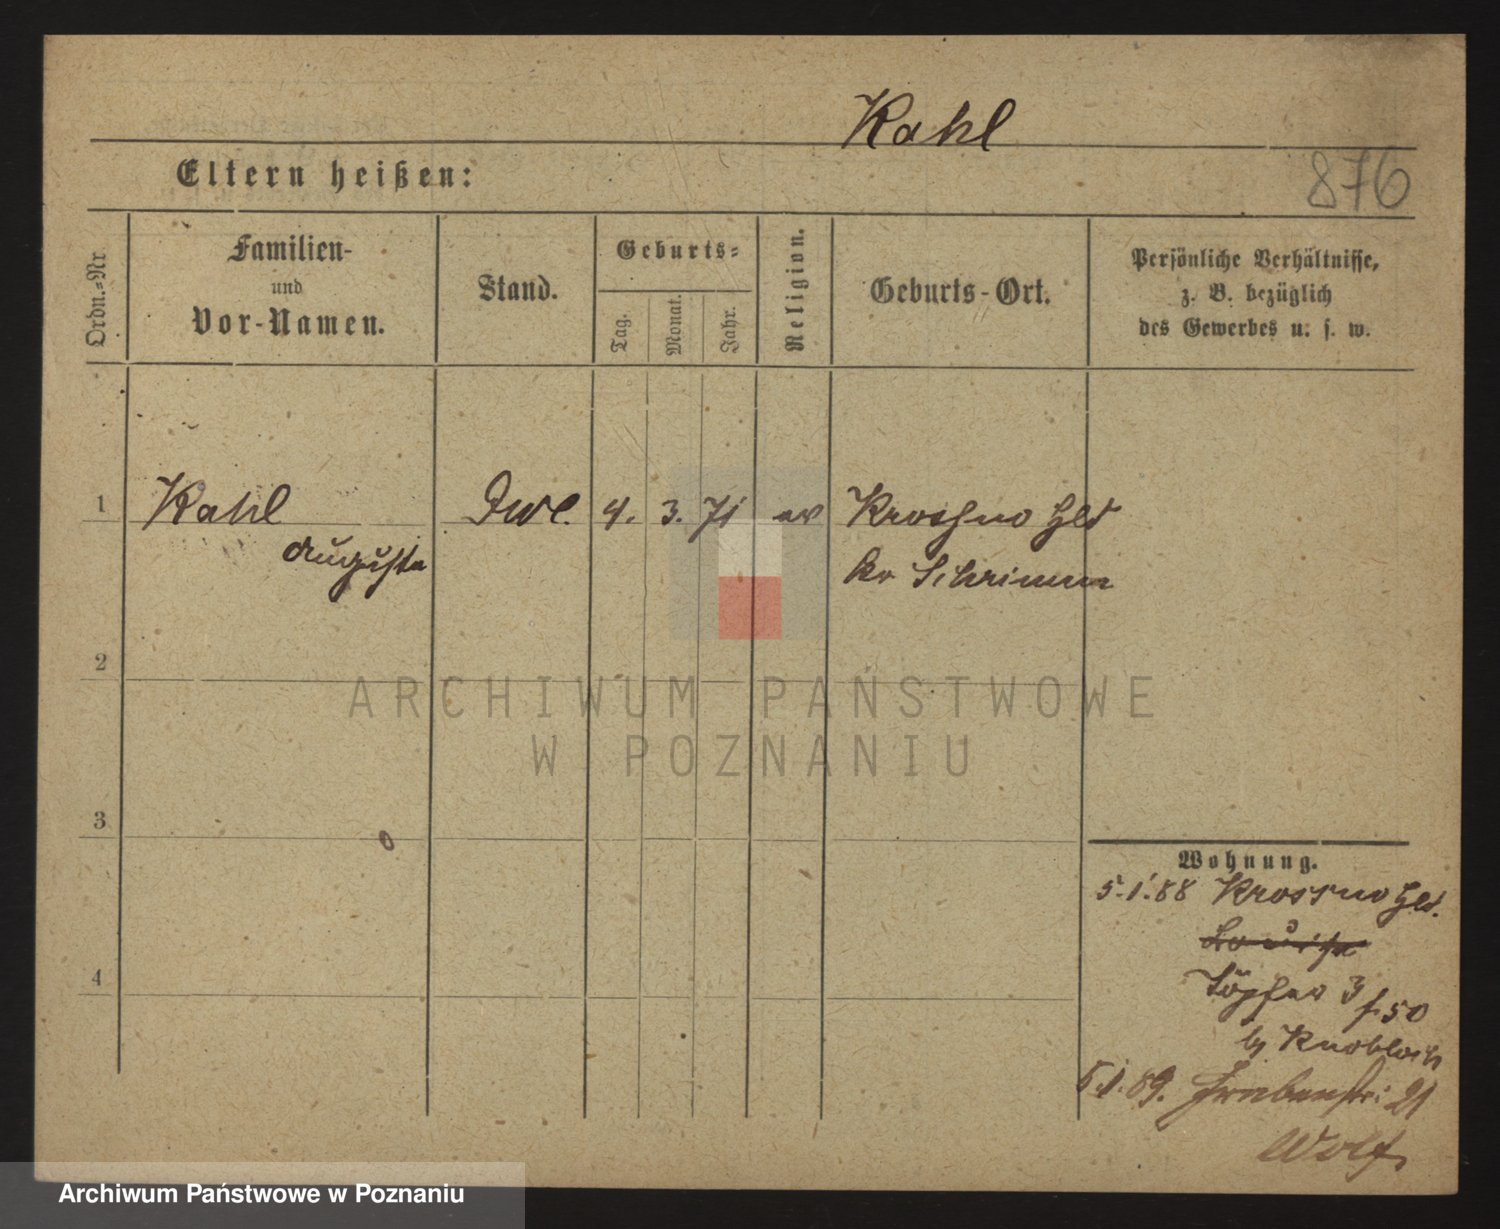 Kahl
Eltern heißen:
876
Ordn.-Nr
Familien-
und
Vor-Namen.
Stand.
Geburts-
Tag.
Monat.
Jahr.
Religion.
Geburts-Ort.
Persönliche Verhältnisse,
z. B. bezüglich
des Gewerbes u. s. w.
1 Kahl 4. 3. 71 ev Kroschno Hld
Auguste Kr Schrimm
2
ARCHIWUM PAŃSTWOWE
W POZNANIU
3
Wohnung.
5.1.88 Krossno Hld.
4
Töpfer 3
f. 50
by Knobloch
5.1.89. Grabenstr: 21
Wolf.
Archiwum Państwowe w Poznaniu